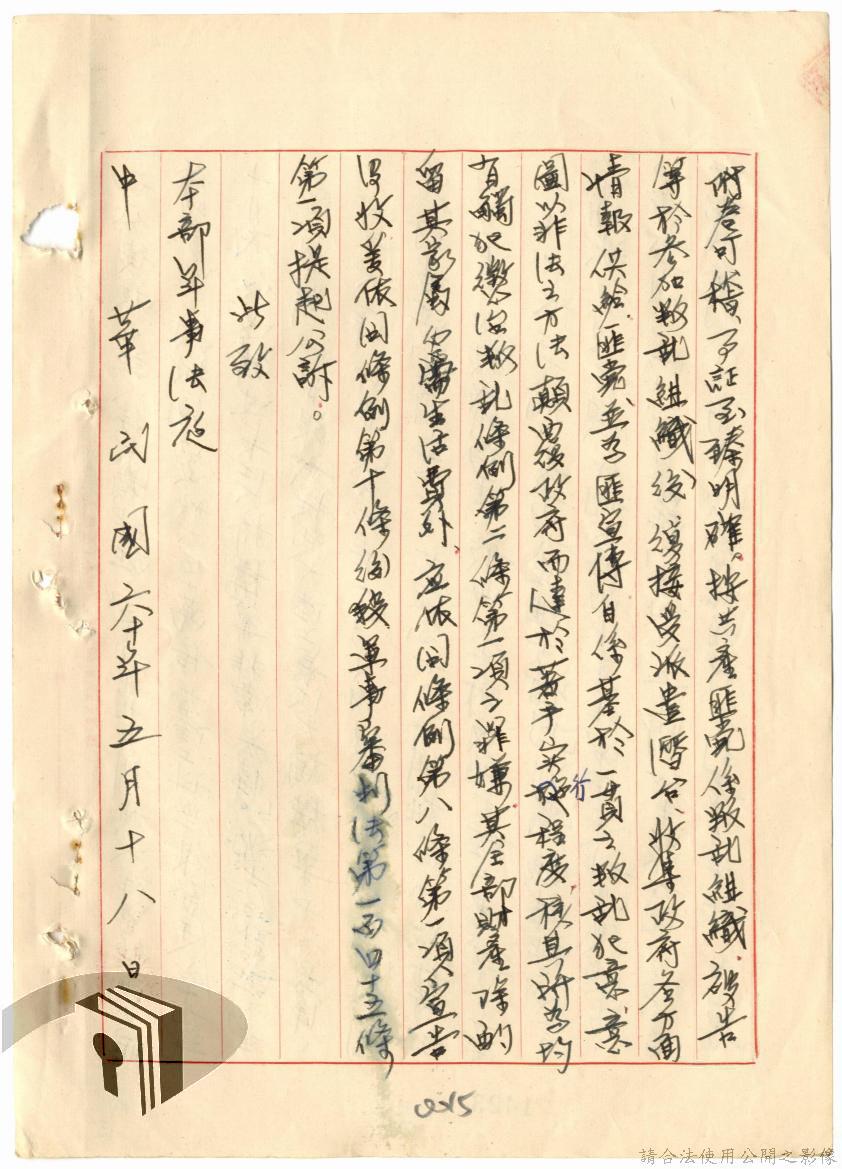 附卷可稽、事証至臻明確、按共產匪党係叛乱組織、被告
等於参加叛乱組織後、復接受派遣潛台、收集政府各方面
情報供給匪党、並為匪宣傳自係基於一貫之叛乱犯意、意
圖以非法之方法顛覆政府而達於著手实行程度、核其所為均
有觸犯懲治叛乱條例第二條第一項之罪嫌、其全部財產除酌
留其家屬必需生活費外、应依同條例第八條第一項宣告
沒收、爰依同條例第十條後段軍事審判法第一百四十五條
第一項提起公訴。
此致
本部軍事法庭
中華民國六十年五月十八日
0215
請合法使用公開之影像